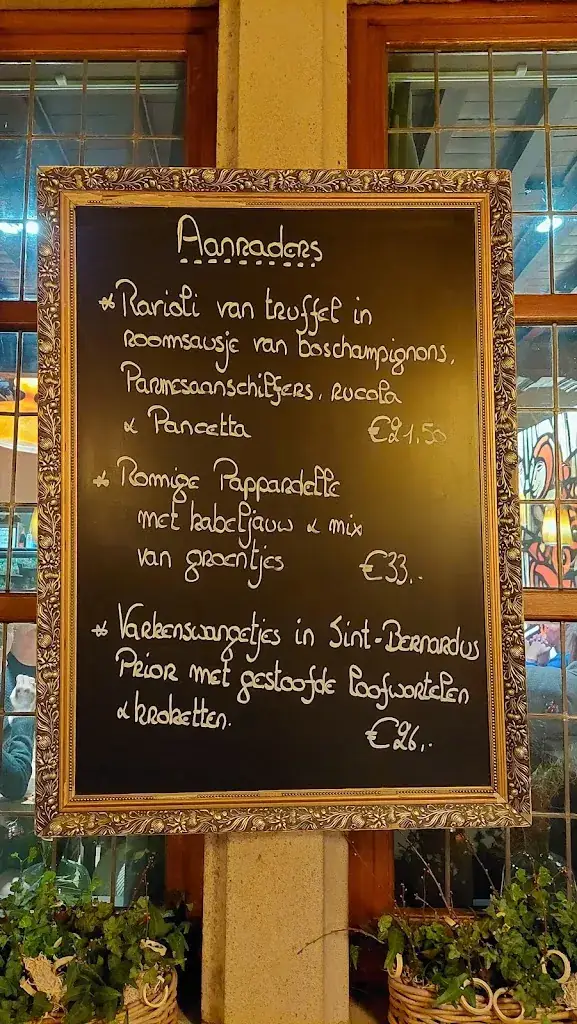 Aanraders
* Ravioli van truffel in
roomsausje van boschampignons,
Parmesaanschilfers, rucola
& Pancetta €21,50
* Romige Pappardelle
met kabeljauw & mix
van groentjes €33,-
* Varkenswangetjes in Sint-Bernardus
Prior met gestoofde loofwortelen
& kroketten. €26,-